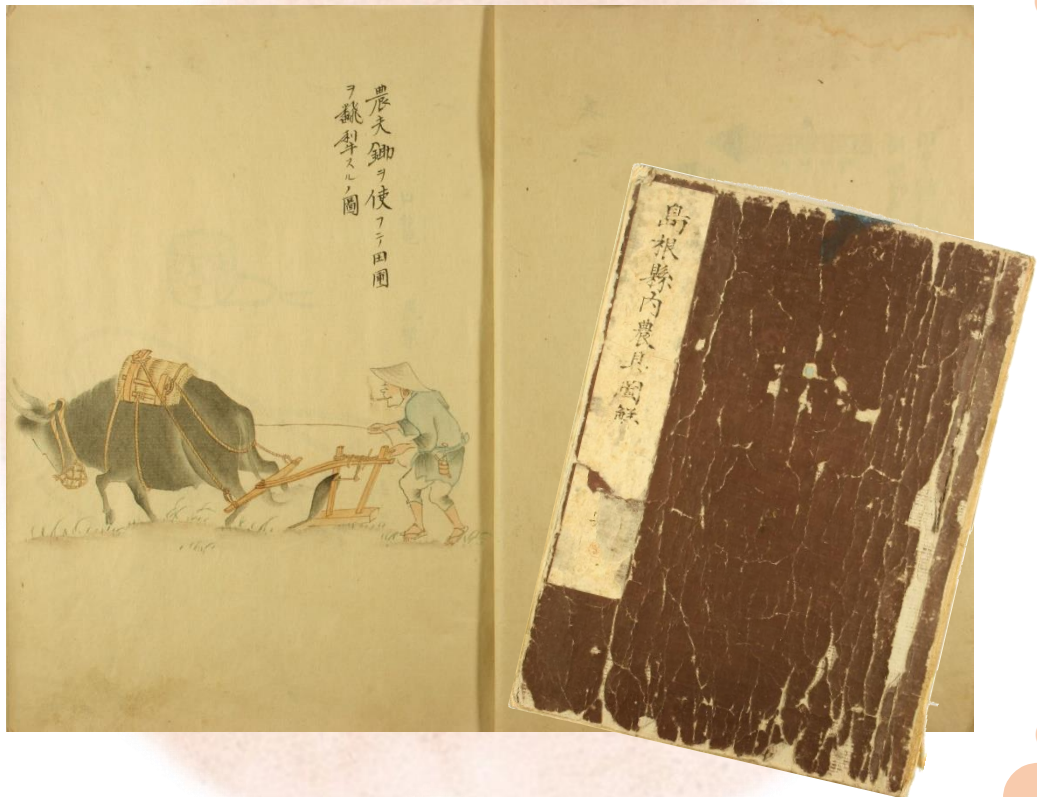 農夫鋤ヲ使フテ田圃
ヲ飜犂スルノ圖
島根縣内農具圖解